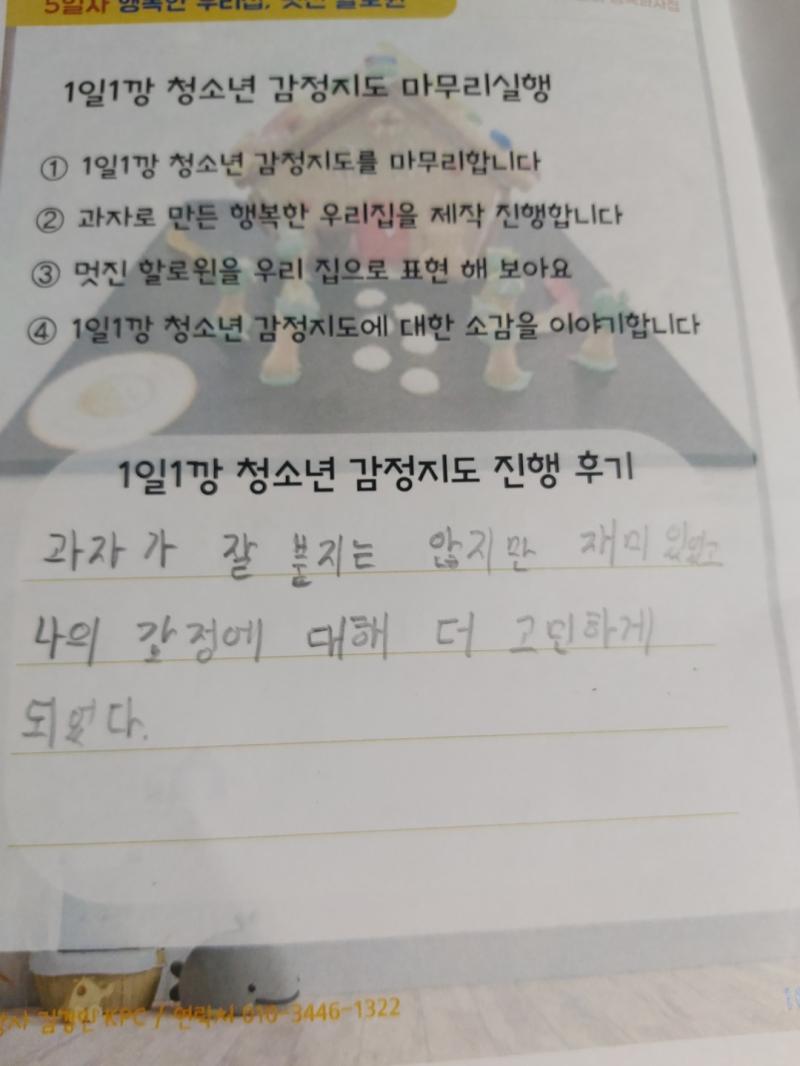 5일차 행복한 우리집, 멋진 할로윈
1일1깡 청소년 감정지도 마무리실행
① 1일1깡 청소년 감정지도를 마무리합니다
② 과자로 만든 행복한 우리집을 제작 진행합니다
③ 멋진 할로윈을 우리 집으로 표현 해 보아요
④ 1일1깡 청소년 감정지도에 대한 소감을 이야기합니다
1일1깡 청소년 감정지도 진행 후기
과자가 잘 붙지는 않지만 재미있었고
나의 감정에 대해 더 고민하게
되었다.
KPC / 연락처 010-3446-1322